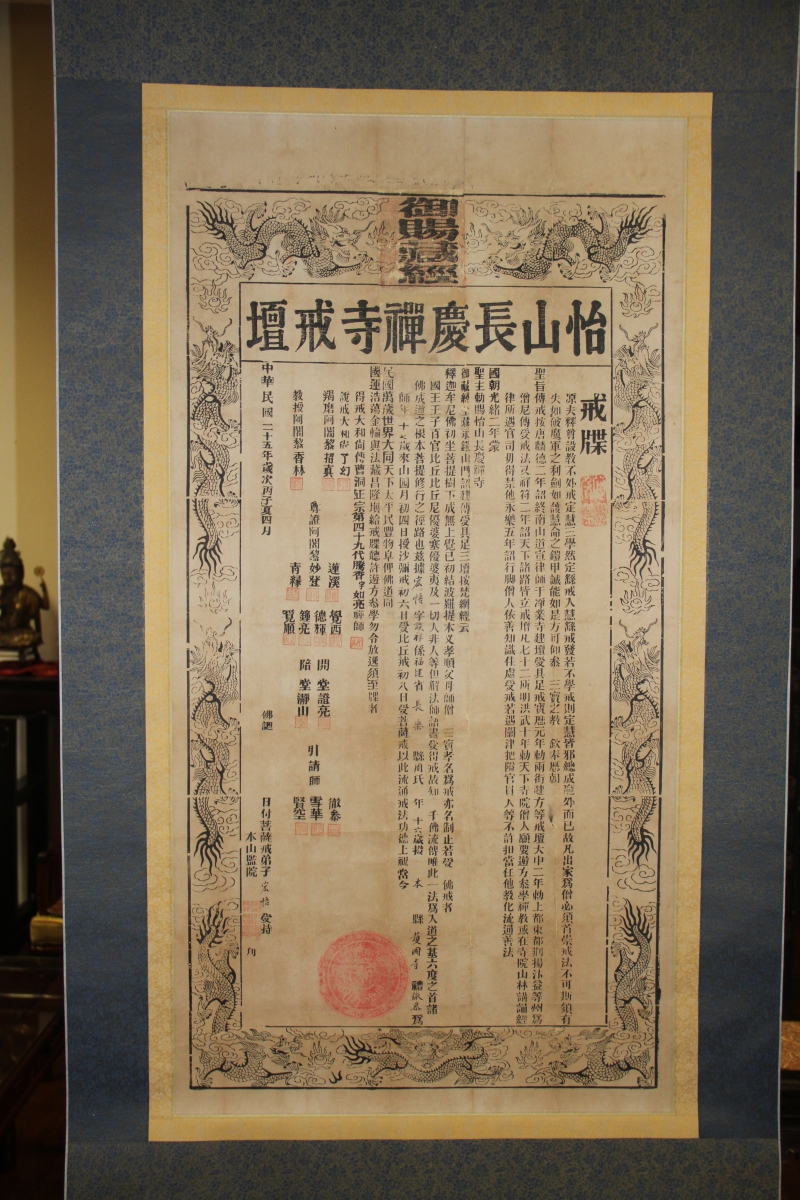 御賜藏經
怡山長慶禪寺戒壇
戒牒
原夫釋尊設教不外戒定慧三學然定繇戒入慧繇戒發若不學戒則定慧皆邪總成魔外而已故凡出家為僧必須首崇戒法不可斯須有
失如破魔軍之利劍如護慧命之鎧甲誠能如是方可仰叅三寶之教欽奉歷朝
聖旨傳戒按唐麟德二年詔終南山道宣律師于淨業寺建壇受具足戒寶應元年勅兩街建方等戒壇大中二年勅上都東都荊揚汴益等州為
僧尼傳受戒法又祥符二年詔天下諸路皆立戒壇凡七十二所明洪武十年勅天下寺院僧人願要遊方叅學禪教或在寺院山林講誦經
律所遇官司毋得禁他永樂五年詔行脚僧人依善知識住處受戒若遇關津把隘官員人等不許扣當任他教化流通善法
國朝光緒二年蒙
聖主勅賜怡山長慶禪寺
釋迦牟尼佛初坐菩提樹下成無上覺已初結波羅提木叉孝順父母師僧三寶孝名為戒亦名制止若受佛戒者
國王王子百官比丘比丘尼優婆塞優婆夷及一切人非人等但解法師語盡受得戒故知千佛流傳唯此一法為入道之基六度之首諸
佛成道之根本菩提修行之徑路也茲據宏悟字 係福建省長樂縣周氏年十六歲投本縣 國寺禮 為
師年十七歲來山四月初四日授沙彌戒初六日受比丘戒初八日受菩薩戒以此流通戒法功德上祝當今
民國萬歲世界大同天下太平民豐物阜俾佛道同
國運浩蕩金輪與法藏昌隆場給戒牒聽許遊方叅學勿令放逸須至牒者
得戒大和尚傳曹洞正宗第四十九代騰香字如亮禪師
說戒大和尚了幻
羯磨阿闍黎 真
教授阿闍黎香林
尊證阿闍黎 蓮溪
妙登
青釋
覺西
德輝
鐘亮
覽順
開堂證亮
陪堂瀞山
引請師 徹叅
雪華
賢空
中華民國二十五年歲次丙子夏四月 佛 日付菩薩戒弟子宏悟受持
本山監院 印